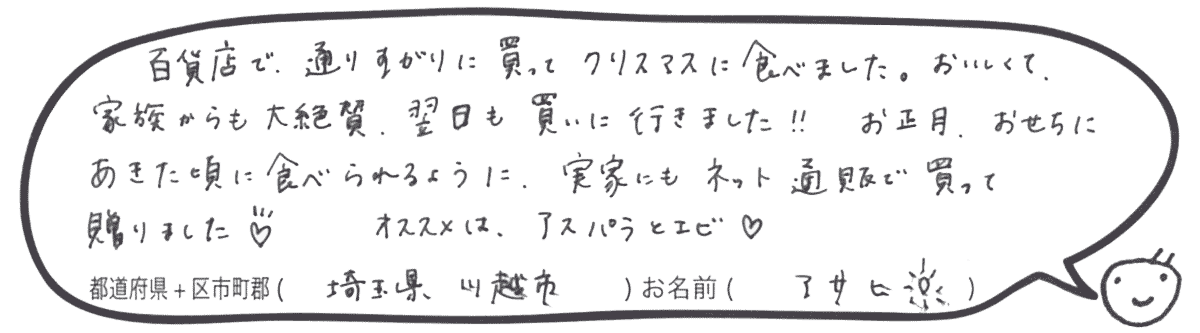 百貨店で、通りすがりに買ってクリスマスに食べました。おいしくて、
家族からも大絶賛、翌日も買いに行きました!! お正月、おせちに
あきた頃に食べられるように、実家にもネット通販で買って
贈りました♡ オススメは、アスパラとエビ♡
都道府県+区市町郡( 埼玉県、川越市 )お名前( アサヒ )